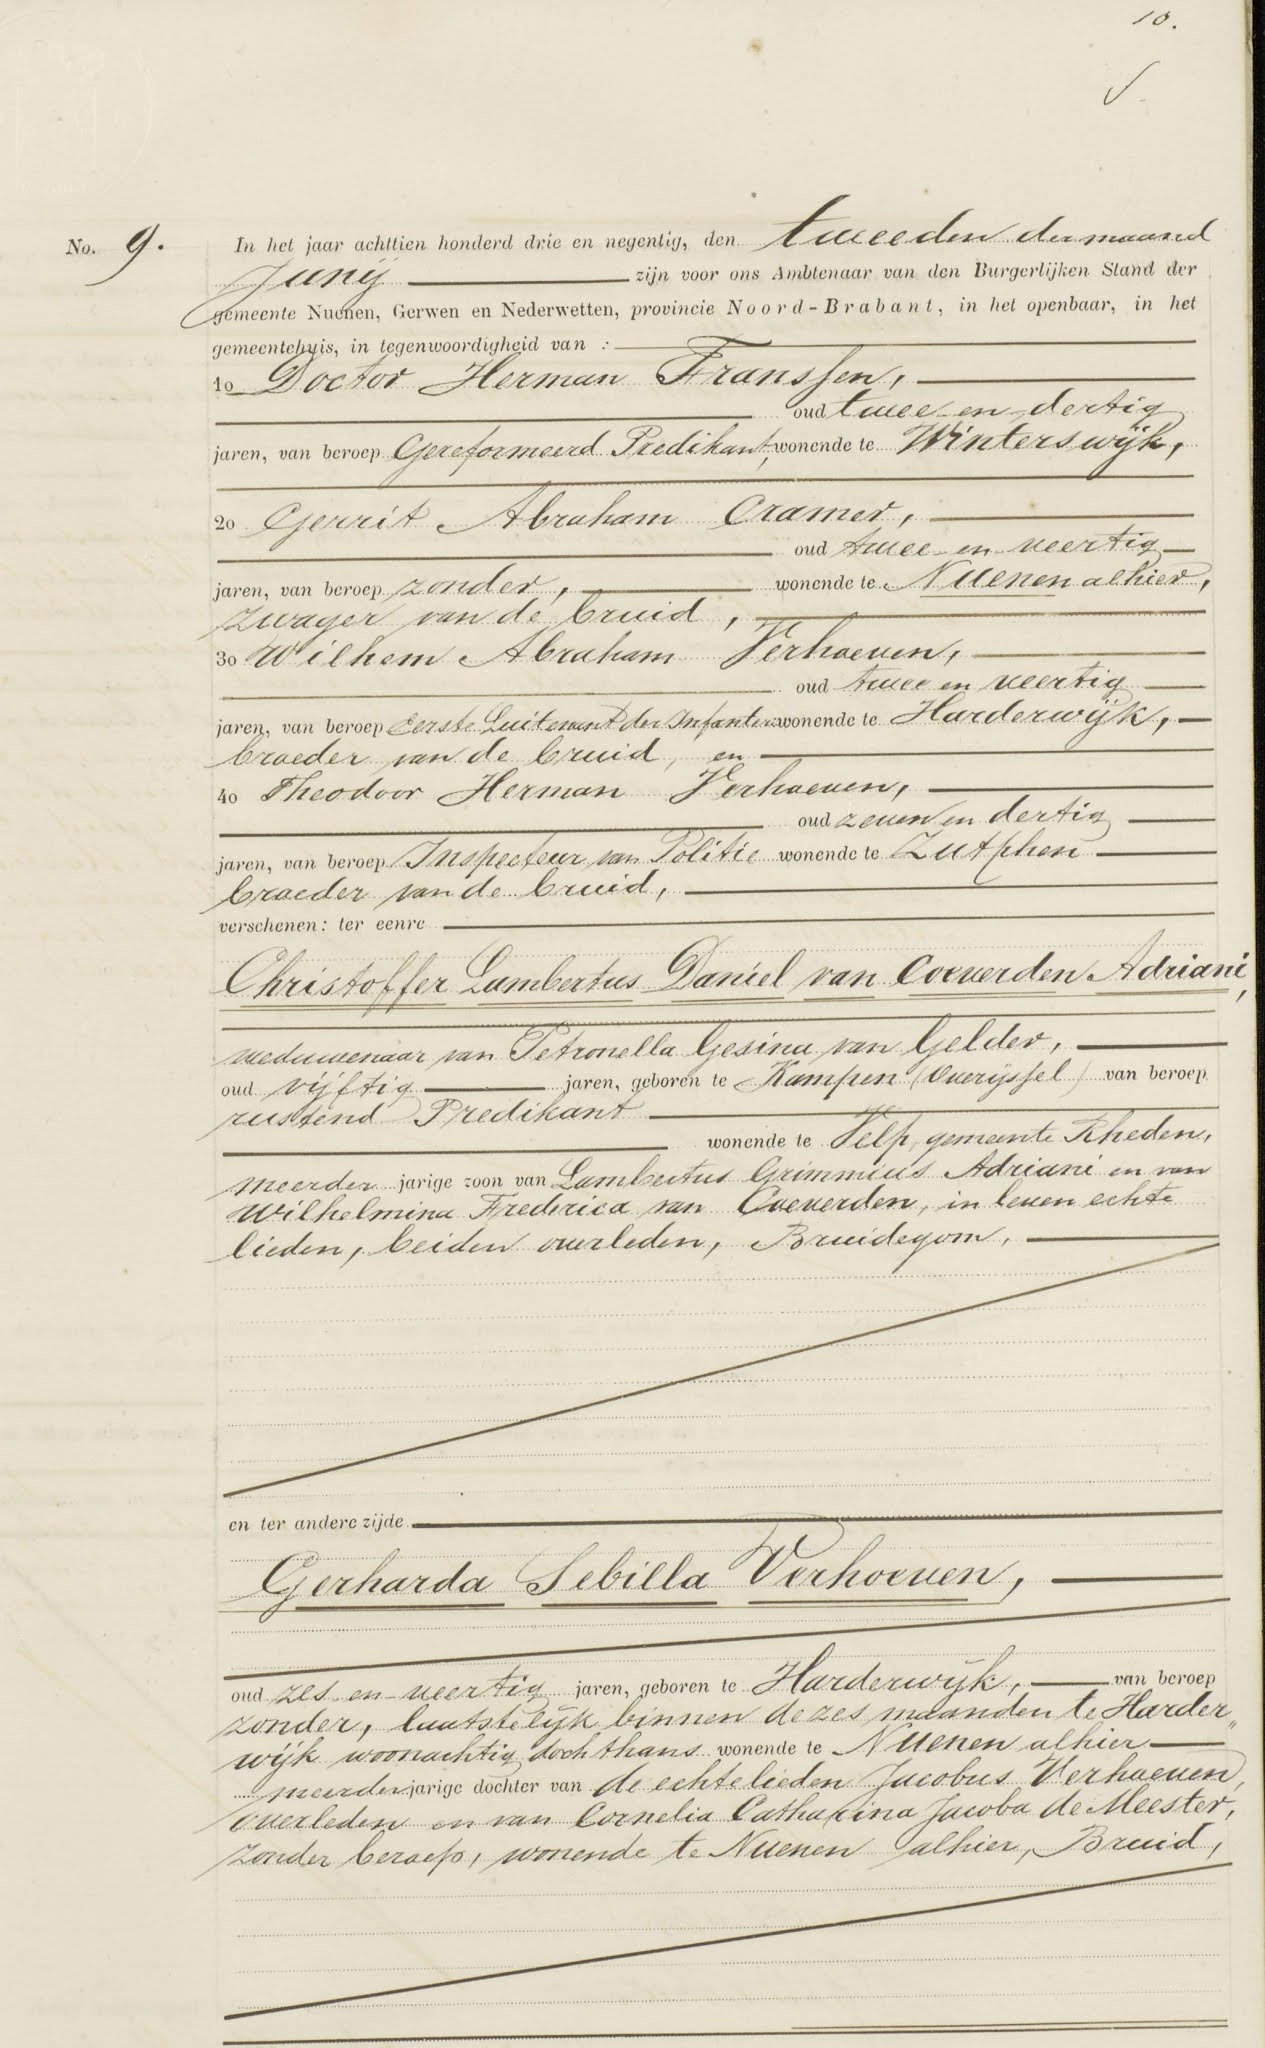 10.
No. 9. In het jaar achttien honderd drie en negentig, den tweeden der maand
Junij zijn voor ons Ambtenaar van den Burgerlijken Stand der
gemeente Nuenen, Gerwen en Nederwetten, provincie Noord-Brabant, in het openbaar, in het
gemeentehuis, in tegenwoordigheid van :
1o Doctor Herman Franssen,
oud twee en dertig
jaren, van beroep Gereformeerd Predikant, wonende te Winterswijk,
2o Gerrit Abraham Cramer,
oud twee en veertig
jaren, van beroep zonder, wonende te Nuenen alhier,
zwager van de bruid,
3o Wilhem Abraham Verhoeven,
oud twee en veertig
jaren, van beroep Eerste Luitenant der Infanterie wonende te Harderwijk,
broeder van de bruid, en
4o Theodoor Herman Verhoeven,
oud zeven en dertig
jaren, van beroep Inspecteur van Politie wonende te Zutphen
broeder van de bruid,
verschenen: ter eenre
Christoffer Lambertus Daniel van Coeverden Adriani,
weduwenaar van Petronella Gesina van Gelder,
oud vijftig jaren, geboren te Kampen (Overijssel) van beroep
rustend Predikant
wonende te Velp, gemeente Rheden,
meerder jarige zoon van Lambertus Grimmius Adriani en van
Wilhelmina Frederica van Coeverden, in leven echte
lieden, beiden overleden, Bruidegom,
en ter andere zijde
Gerharda Sebilla Verhoeven,
oud zes en veertig jaren, geboren te Harderwijk, van beroep
zonder, laatstelijk binnen de zes maanden te Harder„
wijk woonachtig doch thans wonende te Nuenen alhier
meerder jarige dochter van de echtelieden Jacobus Verhoeven,
overleden en van Cornelia Catharina Jacoba de Meester,
zonder beroep, wonende te Nuenen alhier, Bruid,